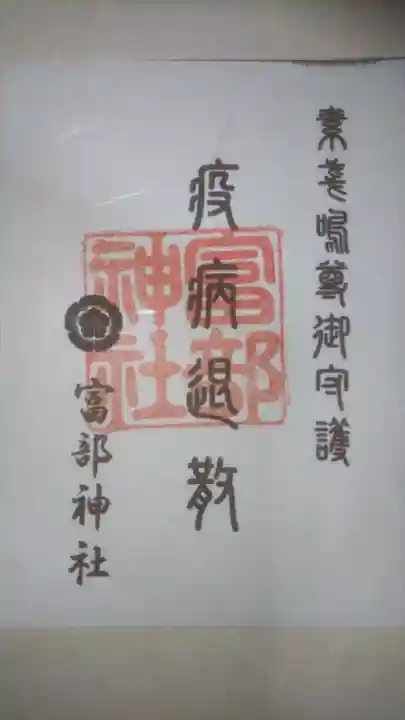 素戔嗚尊御守護
疫病退散
富部神社
富部神社